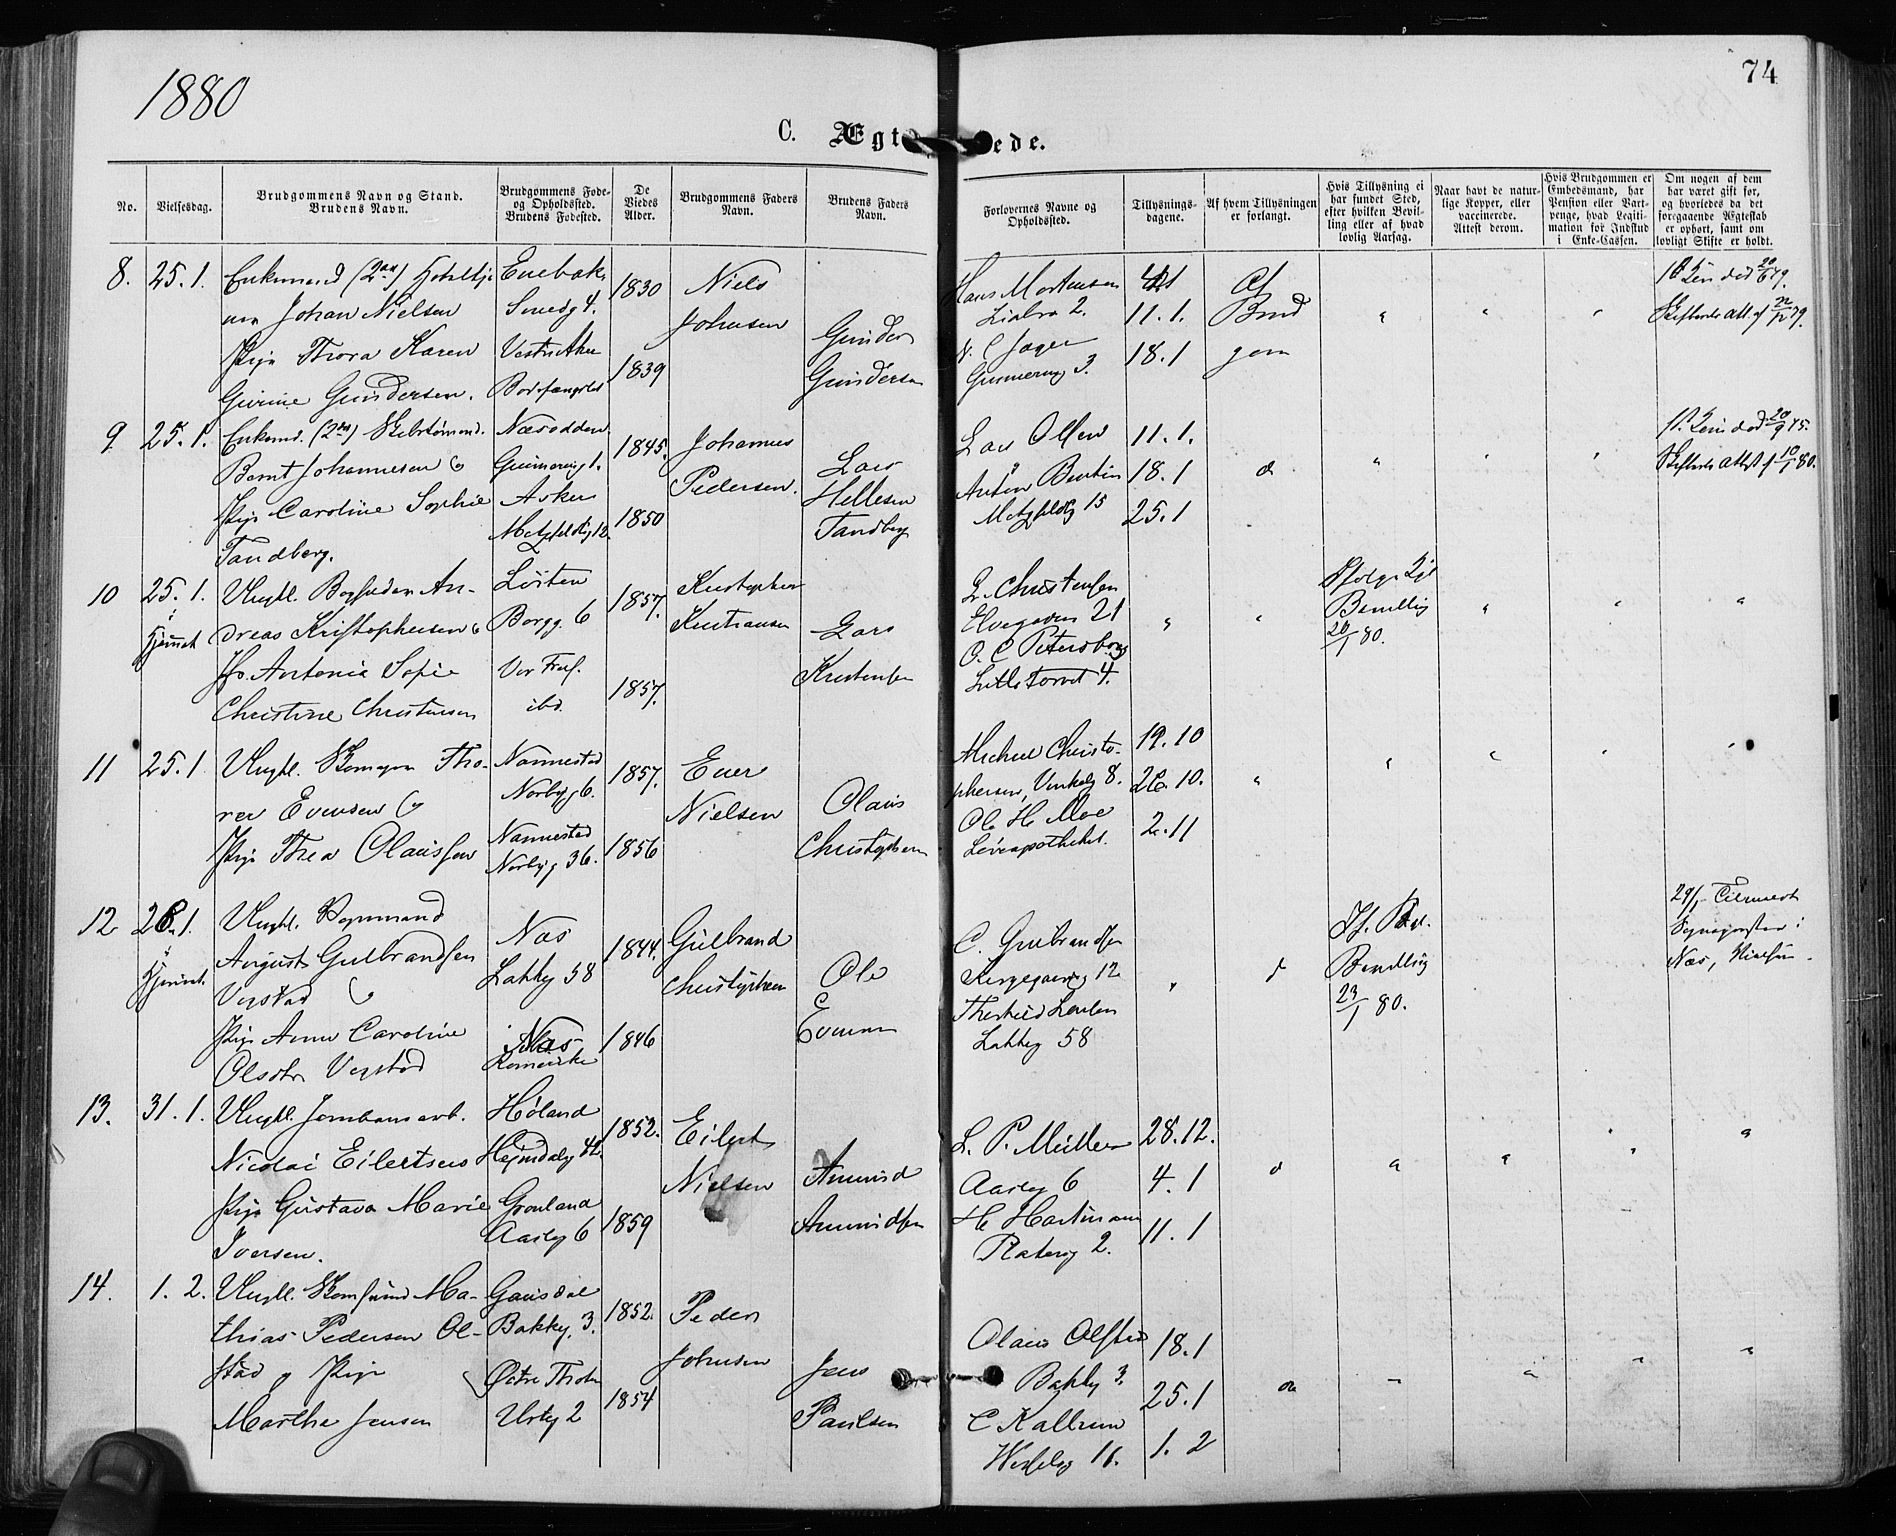 1880
74
C. Ægt ede.
No.
Vielsesdag.
Brudgommens Navn og Stand.
Brudens Navn.
Brudgommens Føde-
og Opholdssted.
Brudens Fødested.
De
Viedes
Alder.
Brudgommens Faders
Navn.
Brudens Faders
Navn.
Forlovernes Navne og
Opholdssted.
Tillysnings-
dagene.
Af hvem Tillysningen
er forlangt.
Hvis Tillysning ei
har fundet Sted,
efter hvilken Bevil-
ling eller af hvad
lovlig Aarsag.
Naar havt de natur-
lige Kopper, eller
vaccinerede.
Attest derom.
Hvis Brudgommen er
Embedsmand, har
Pension eller Vart-
penge, hvad Legiti-
mation for Indskud
i Enke-Cassen.
Om nogen af dem
har været gift før,
og hvorledes da det
foregaaende Ægteskab
er ophørt, samt om
lovligt Skifte er holdt.
8. 25. 1. Enkemand (2den)
Johan Nielsen
Pige Thora Karen
Gurine Gundersen.
Enebak
Smedg 4.
Vestre Aker
1830
1839
Niels
Johnsen
Gunder
Gundersen
Hans Mortensen
2.
11.1.
18.1
Af
Brud
gom
9. 25. 1. Enkemd. (2den)
Bernt Johannesen og
Pige Caroline Sophie
Tandberg.
Næsodden
Grünersg 1.
Asker
Metzfeldtsg 12
1845.
1850
Johannes
Pedersen.
Lars
Hellesen
Tandberg
Lars Olsen
Anton Berntsen
Metzfeldtg 15
11.1.
18.1
25.1
do
10 25. 1.
Hjemmet
Ungkl. Bogfinder An-
dreas Kristophersen og
Jfr. Antonie Sofie
Christine Christensen
Løiten
Borgg. 6
Vor Frels.
ibd.
1857.
1857.
Kristopher
Kristiansen
Lars
Kristensen
L. Christensen
Elvegaden 21
O. C. Petersborg
Lille Torvet 4.
Ifølge Kgl
Bevilling
20/1 80.
11 25. 1
Ungkl. Skomager Tho-
rer Evensen og
Pige Thea Olaussen
Nannestad
Norbyg 6.
Nannestad
Norbyg 36.
1857.
1856
Even
Nielsen
Olaus
Christophersen
Michael Christo-
phersen, Vinkelg 8.
Ole H. Moe
Løveapotheket.
19.10
26.10.
2.11
12 26. 1.
Hjemmet.
Ungkl. Vognmand
August Gulbrandsen
Vegstad og
Pige Anne Caroline
Olsdtr Vegstad
Næs
Lakkeg 58
Næs
Romerike
1844.
1846
Gulbrand
Christophersen
Ole
Evensen
C. Gulbrandsen
12
Lakkeg 58
Bevilling
23/1 80.
29/1
Sognepresten i
Næs,
13. 31. 1.
Ungkl. Jernbanearb.
Nicolai Eilertsen
Pige Gustava Marie
Iversen.
Høland
Heimdalsg 42.
Grønland
Aasleg 6
1852.
1859
Eilert
Nielsen
Amund
Amundsen
L. P. Müller
Aasleg 6
H. Hartmann
Platousg 2.
28.12.
4.1
11.1
do
14. 1. 2.
Ungkl. Ma-
thias Pedersen Ol-
stad og Pige
Marthe Jensen
Gausdal
Bakkeg. 3.
Østre Thoten
Urteg 2
1852.
1854
Peder
Johnsen
Jens
Paulsen
Olaus Olstad
Bakkeg 3.
C Kallum
Wesselsg 16.
18.1
25.1
1.2
do